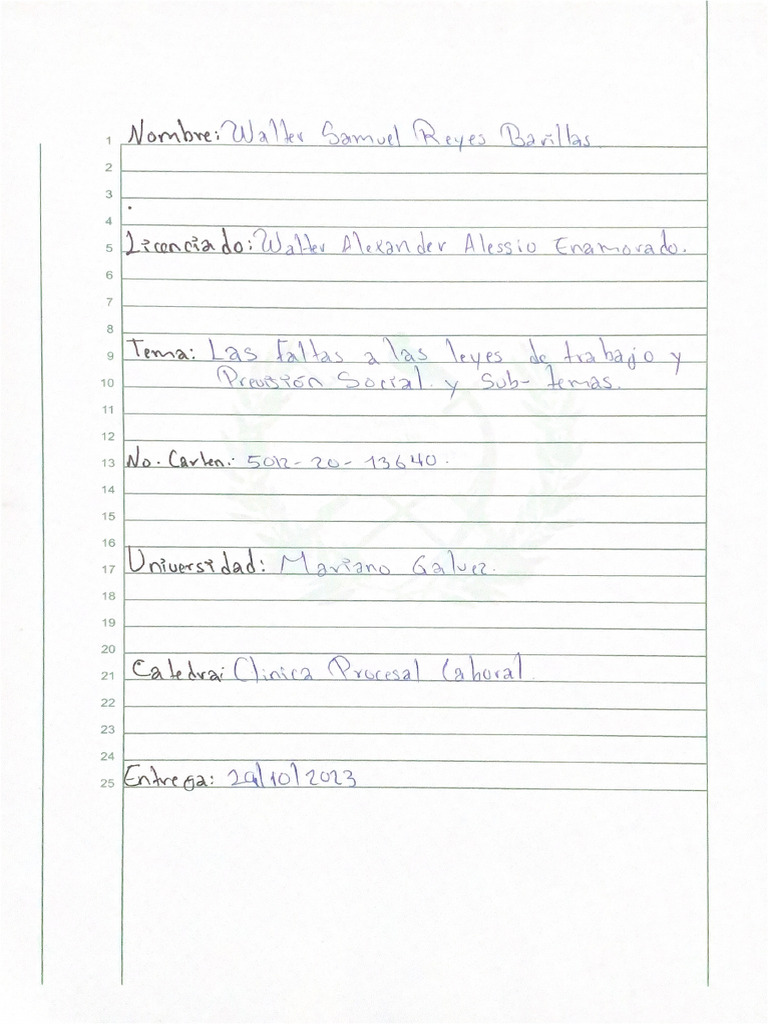 1 Nombre: Walter Samuel Reyes Barillas
2
3 .
4
5 Licenciado: Walter Alexander Alessio Enamorado.
6
7
8
9 Tema: Las faltas a las leyes de trabajo y
10 Previsión Social y sub-temas.
11
12
13 No. Carlen.: 5012-20-13640.
14
15
16
17 Universidad: Mariano Galvez.
18
19
20
21 Catedra: Clinica Procesal Laboral
22
23
24
25 Entrega: 29/10/2023